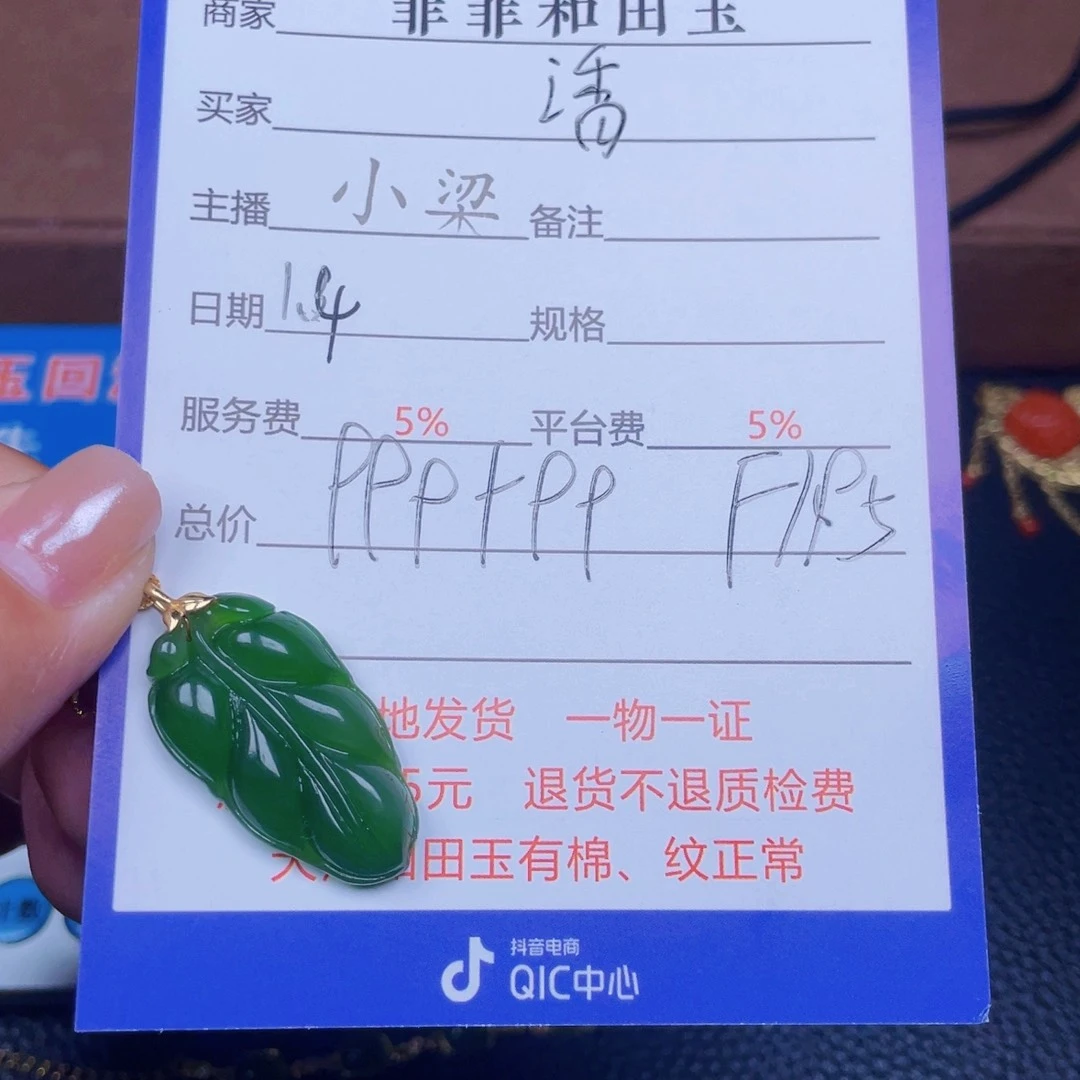 商家 菲菲和田玉
买家 潘
主播 小梁 备注
日期 规格
服务费 5% 平台费 5%
总价
地发货 一物一证
5元 退货不退质检费
田玉有棉、纹正常
抖音电商
QIC中心
玉回